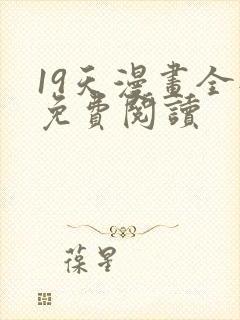 19天漫畫全
免費閱讀
葆星